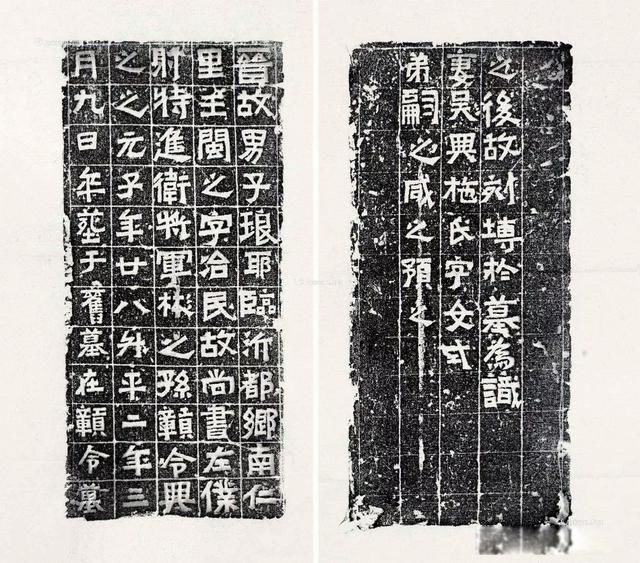 晉故男子琅耶臨沂都鄉南仁
里王閩之字冶民故尚書左僕
射特進衛將軍彬之孫贛令興
之之元子年廿八升平二年三
月九日卒葬于舊墓在贛令墓
之後故刻塼於墓為識
妻吳興施氏字女式
弟嗣之咸之預之